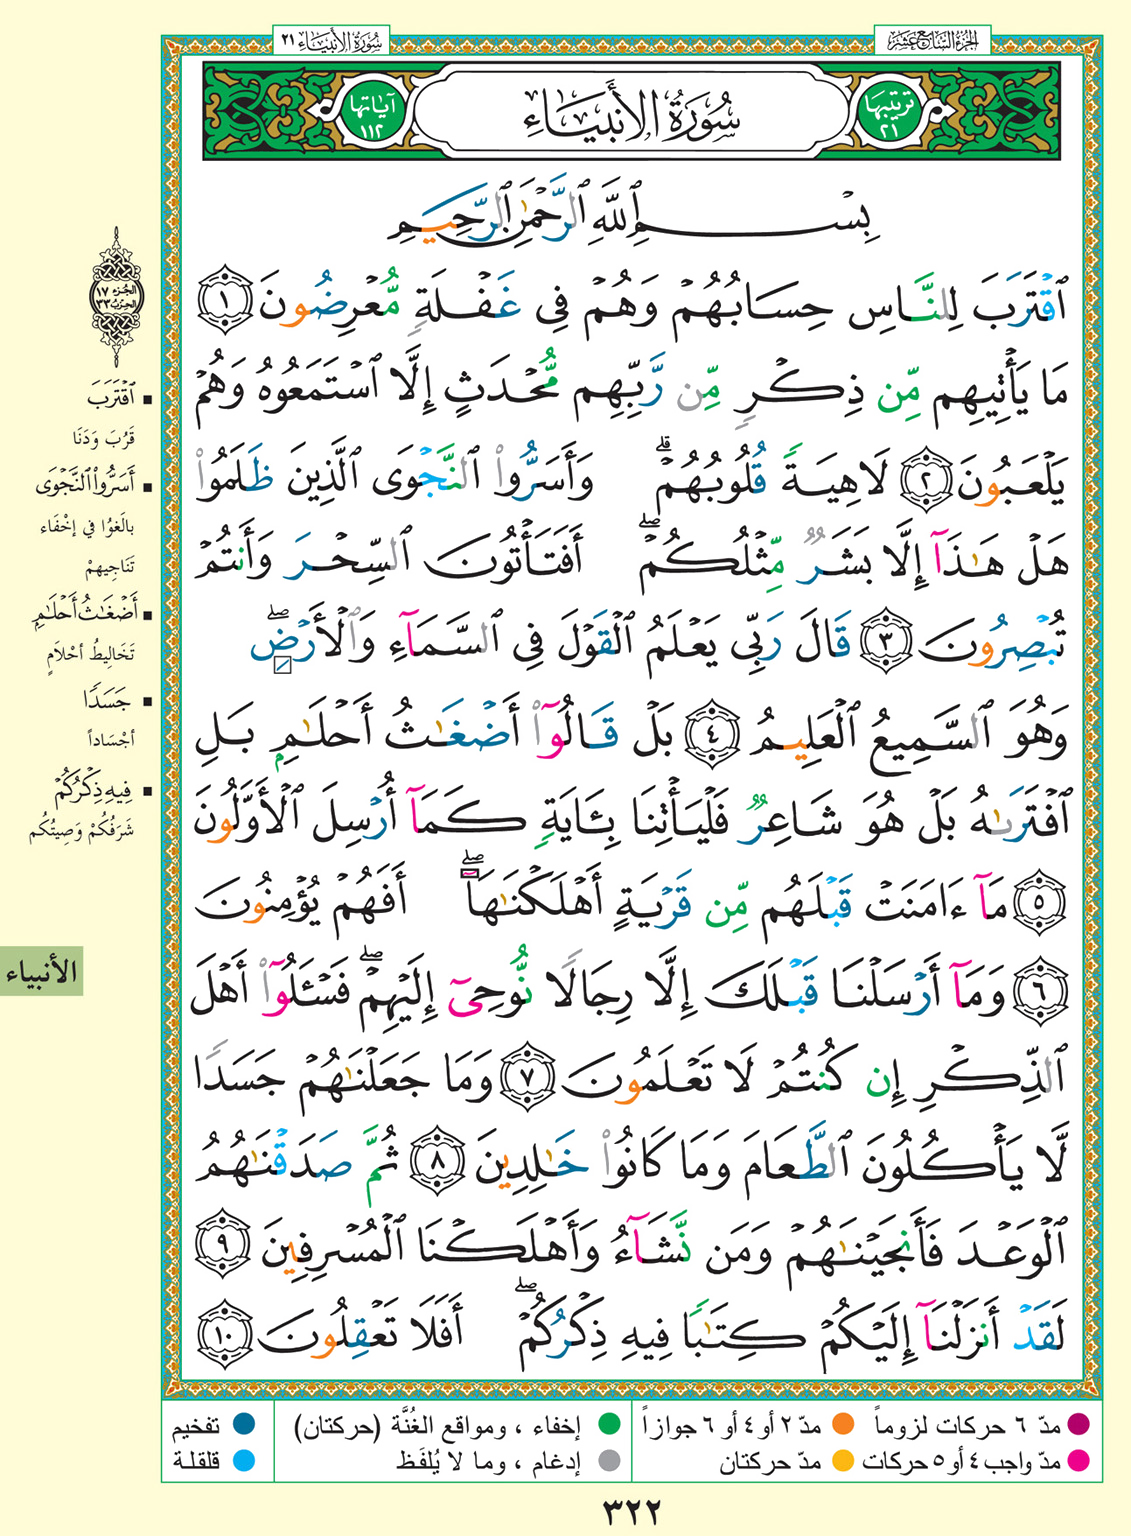 الجزء السابع عشر
سورة الأنبياء ٢١
ترتيبها ٢١
سُورَةُ الأَنبِيَاءِ
آياتها ١١٢
بِسْمِ ٱللَّهِ ٱلرَّحْمَٰنِ ٱلرَّحِيمِ
ٱقْتَرَبَ لِلنَّاسِ حِسَابُهُمْ وَهُمْ فِى غَفْلَةٍ مُّعْرِضُونَ ١
مَا يَأْتِيهِم مِّن ذِكْرٍ مِّن رَّبِّهِم مُّحْدَثٍ إِلَّا ٱسْتَمَعُوهُ وَهُمْ
يَلْعَبُونَ ٢ لَاهِيَةً قُلُوبُهُمْ ۗ وَأَسَرُّوا۟ ٱلنَّجْوَى ٱلَّذِينَ ظَلَمُوا۟
هَلْ هَٰذَآ إِلَّا بَشَرٌ مِّثْلُكُمْ ۖ أَفَتَأْتُونَ ٱلسِّحْرَ وَأَنتُمْ
تُبْصِرُونَ ٣ قَالَ رَبِّى يَعْلَمُ ٱلْقَوْلَ فِى ٱلسَّمَآءِ وَٱلْأَرْضِ ۖ
وَهُوَ ٱلسَّمِيعُ ٱلْعَلِيمُ ٤ بَلْ قَالُوٓا۟ أَضْغَٰثُ أَحْلَٰمٍۭ بَلِ
ٱفْتَرَىٰهُ بَلْ هُوَ شَاعِرٌ فَلْيَأْتِنَا بِـَٔايَةٍ كَمَآ أُرْسِلَ ٱلْأَوَّلُونَ
٥ مَآ ءَامَنَتْ قَبْلَهُم مِّن قَرْيَةٍ أَهْلَكْنَٰهَآ ۖ أَفَهُمْ يُؤْمِنُونَ
٦ وَمَآ أَرْسَلْنَا قَبْلَكَ إِلَّا رِجَالًا نُّوحِىٓ إِلَيْهِمْ ۖ فَسْـَٔلُوٓا۟ أَهْلَ
ٱلذِّكْرِ إِن كُنتُمْ لَا تَعْلَمُونَ ٧ وَمَا جَعَلْنَٰهُمْ جَسَدًا
لَّا يَأْكُلُونَ ٱلطَّعَامَ وَمَا كَانُوا۟ خَٰلِدِينَ ٨ ثُمَّ صَدَقْنَٰهُمُ
ٱلْوَعْدَ فَأَنجَيْنَٰهُمْ وَمَن نَّشَآءُ وَأَهْلَكْنَا ٱلْمُسْرِفِينَ ٩
لَقَدْ أَنزَلْنَآ إِلَيْكُمْ كِتَٰبًا فِيهِ ذِكْرُكُمْ ۖ أَفَلَا تَعْقِلُونَ ١٠
الجزء ١٧
الحزب ٣٣
ٱقْتَرَبَ
قَرُبَ وَدَنَا
أَسَرُّوا۟ ٱلنَّجْوَى
بالَغوُا في إخْفَاء
تَنَاجِيهمْ
أَضْغَٰثُ أَحْلَٰمٍ
تَخَاليطُ أحْلاَمٍ
جَسَدًا
أجْسَاداً
فِيهِ ذِكْرُكُمْ
شَرَفُكُمْ وَصِيتُكُم
الأنبياء
مدّ ٦ حركات لزوماً
مدّ ٢ أو ٤ أو ٦ جوازاً
إخفاء ، ومواقع الغُنَّة (حركتان)
تفخيم
مدّ واجب ٤ أو ٥ حركات
مدّ حركتان
إدغام ، وما لا يُلفَظ
قلقلة
٣٢٢